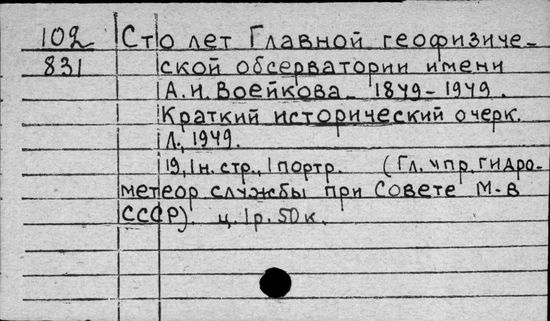 102 Сто лет Главной геофизиче-
831 ской обсерватории имени
А.И. Воейкова 1849-1949.
Краткий исторический очерк.
Л., 1949.
19, 1н. стр., 1 портр. (Гл. упр. гидро-
метеор. службы при Совете М-в
СССР). ц. 1р. 50к.